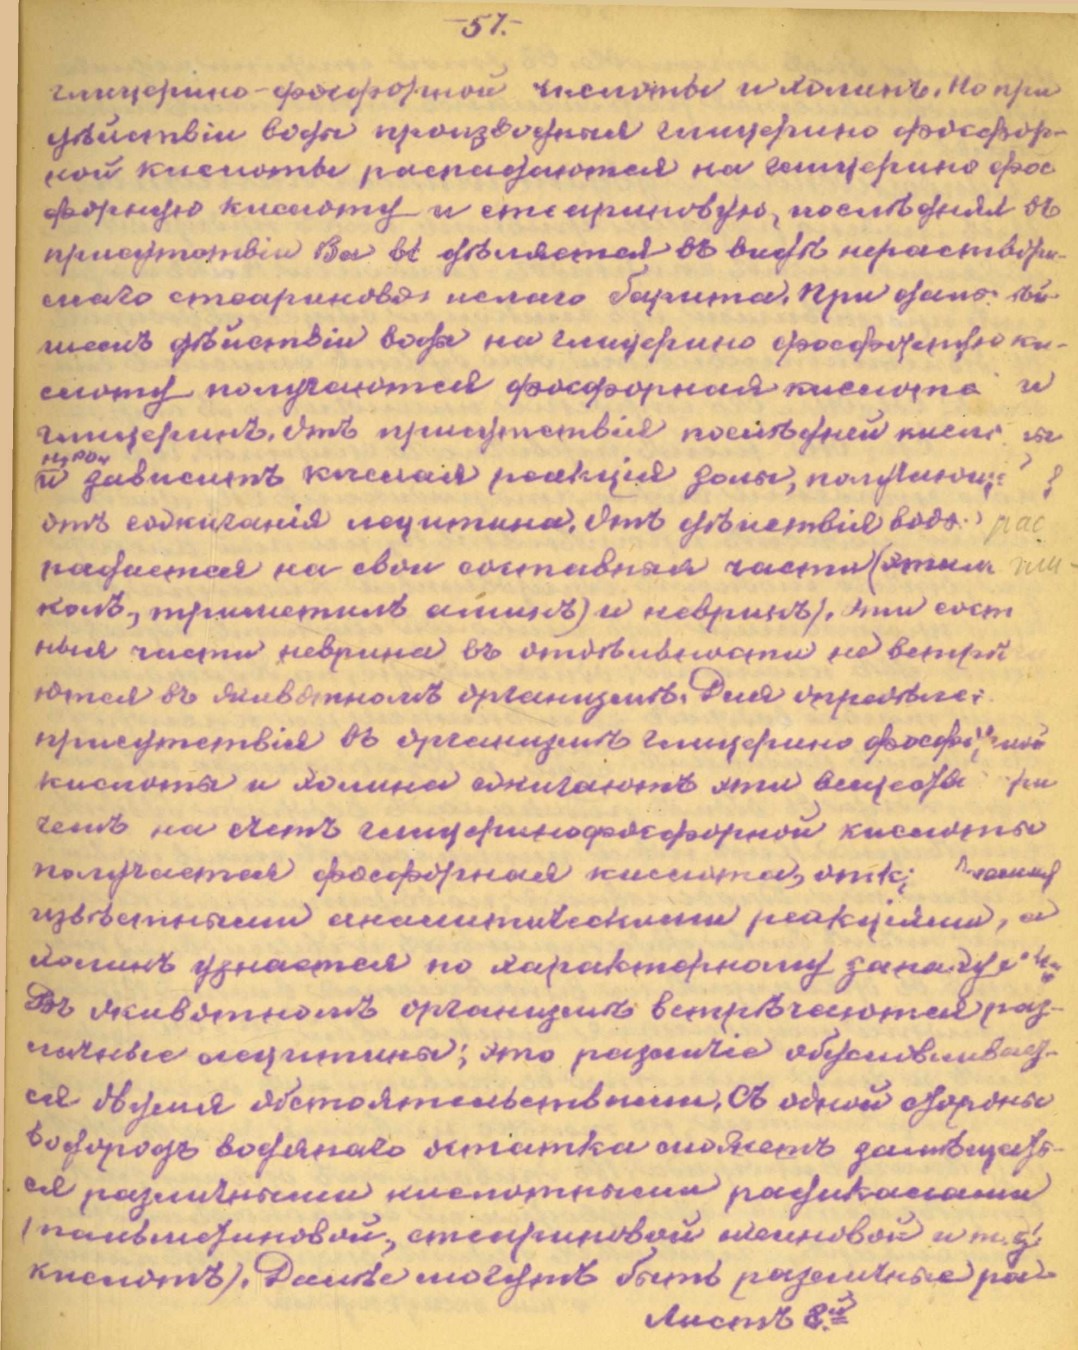 -57.-
глицерино-фосфорной кислоты и холинъ. Но при
дѣйствіи воды производныя глицерино фосфор-
ной кислоты распадаются на глицерино фос
форную кислоту и стеариновую, послѣдняя въ
присутствіи Ba выдѣляется въ видѣ нераствори-
маго стеариново кислаго барита. При
шемъ дѣйствіи воды на глицерино фосфорную ки-
слоту получаются фосфорная кислота и
глицеринъ. Отъ присутствія послѣдней кислоты
H3PO4
и зависитъ кислая реакція золы,
отъ сожиганія лецитина. Отъ дѣйствія воды рас
падается на свои составныя части (этил гли-
коль, триметилъ аминъ) и невринъ). Эти сост
ныя части неврина въ отдѣльности не встрѣ
ются въ животномъ организмѣ. Для
присутствія въ организмѣ глицерино фосфорной
кислоты и холина сжигаютъ эти вещества при
чемъ на счетъ глицеринофосфорной кислоты
получается фосфорная кислота,
извѣстными аналитическими реакціями, а
холинъ узнается по характерному запаху
Въ животномъ организмѣ встрѣчаются раз-
личные лецитины; это различіе обусловливает-
ся двумя обстоятельствами. Съ одной стороны
водородъ водянаго остатка можетъ замѣщать-
ся различными кислотными радикалами
(пальмитиновой, стеариновой олеиновой и т.д.
кислотъ). Далѣе могутъ быть различные ра-
Листъ 8.й